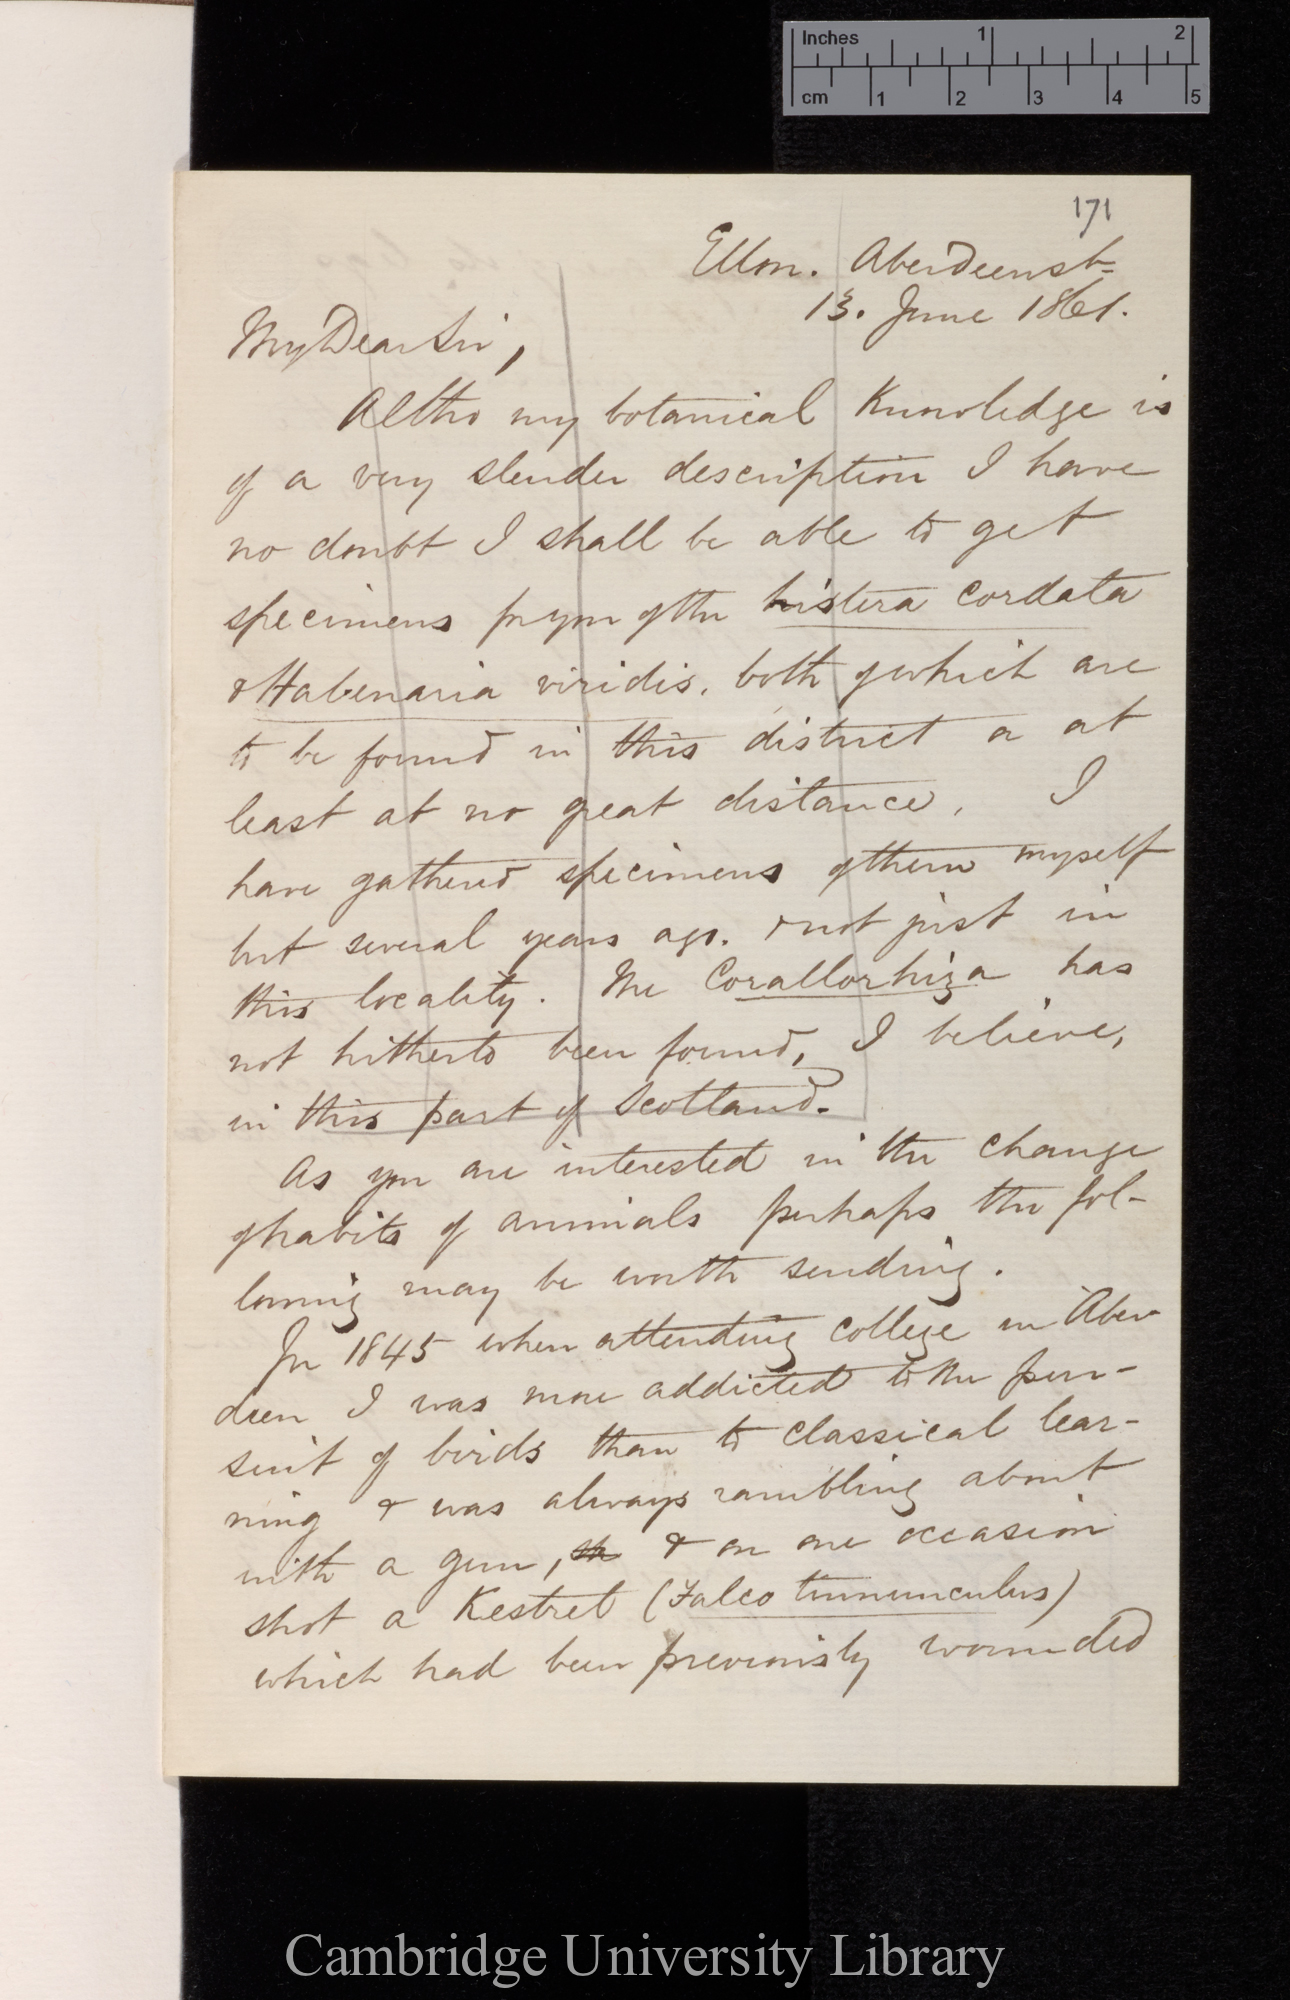 Inches 1 2
cm 1 2 3 4 5
171
Ellon. Aberdeensh.
13. June 1861.
My Dear Sir,
Altho my botanical Knowledge is
of a very slender description I have
no doubt I shall be able to get
specimens for you of the Listera cordata
& Habenaria viridis. both of which are
to be found in this district or at
least at no great distance. I
have gathered specimens of them myself
but several years ago. & not just in
this locality. The Corallorhiza has
not hitherto been found, I believe,
in this part of Scotland.
As you are interested in the change
of habits of animals perhaps the fol-
lowing may be worth sending.
In 1845 when attending college in Aber
deen I was more addicted to the pur-
suit of birds than to classical lear-
ning & was always rambling about
with a gun, & on one occasion
shot a Kestrel (Falco tinnunculus)
which had been previously wounded
Cambridge University Library